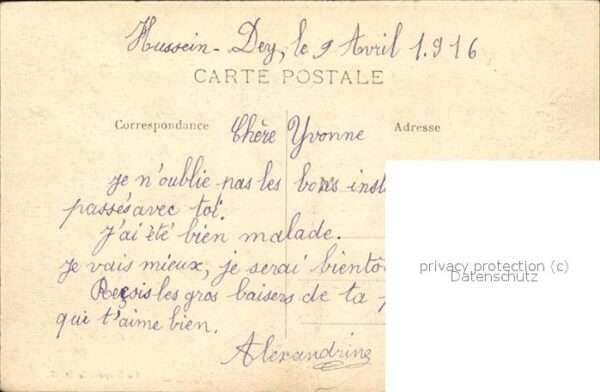 Hussein-Dey, le 9 Avril 1916
CARTE POSTALE
Correspondance Adresse
Chère Yvonne
Je n'oublie pas les bons inst
passés avec toi.
J'ai été bien malade.
Je vais mieux, je serai bientô
Reçois les gros baisers de ta
qui t'aime bien.
Alexandrine
privacy protection (c)
Datenschutz